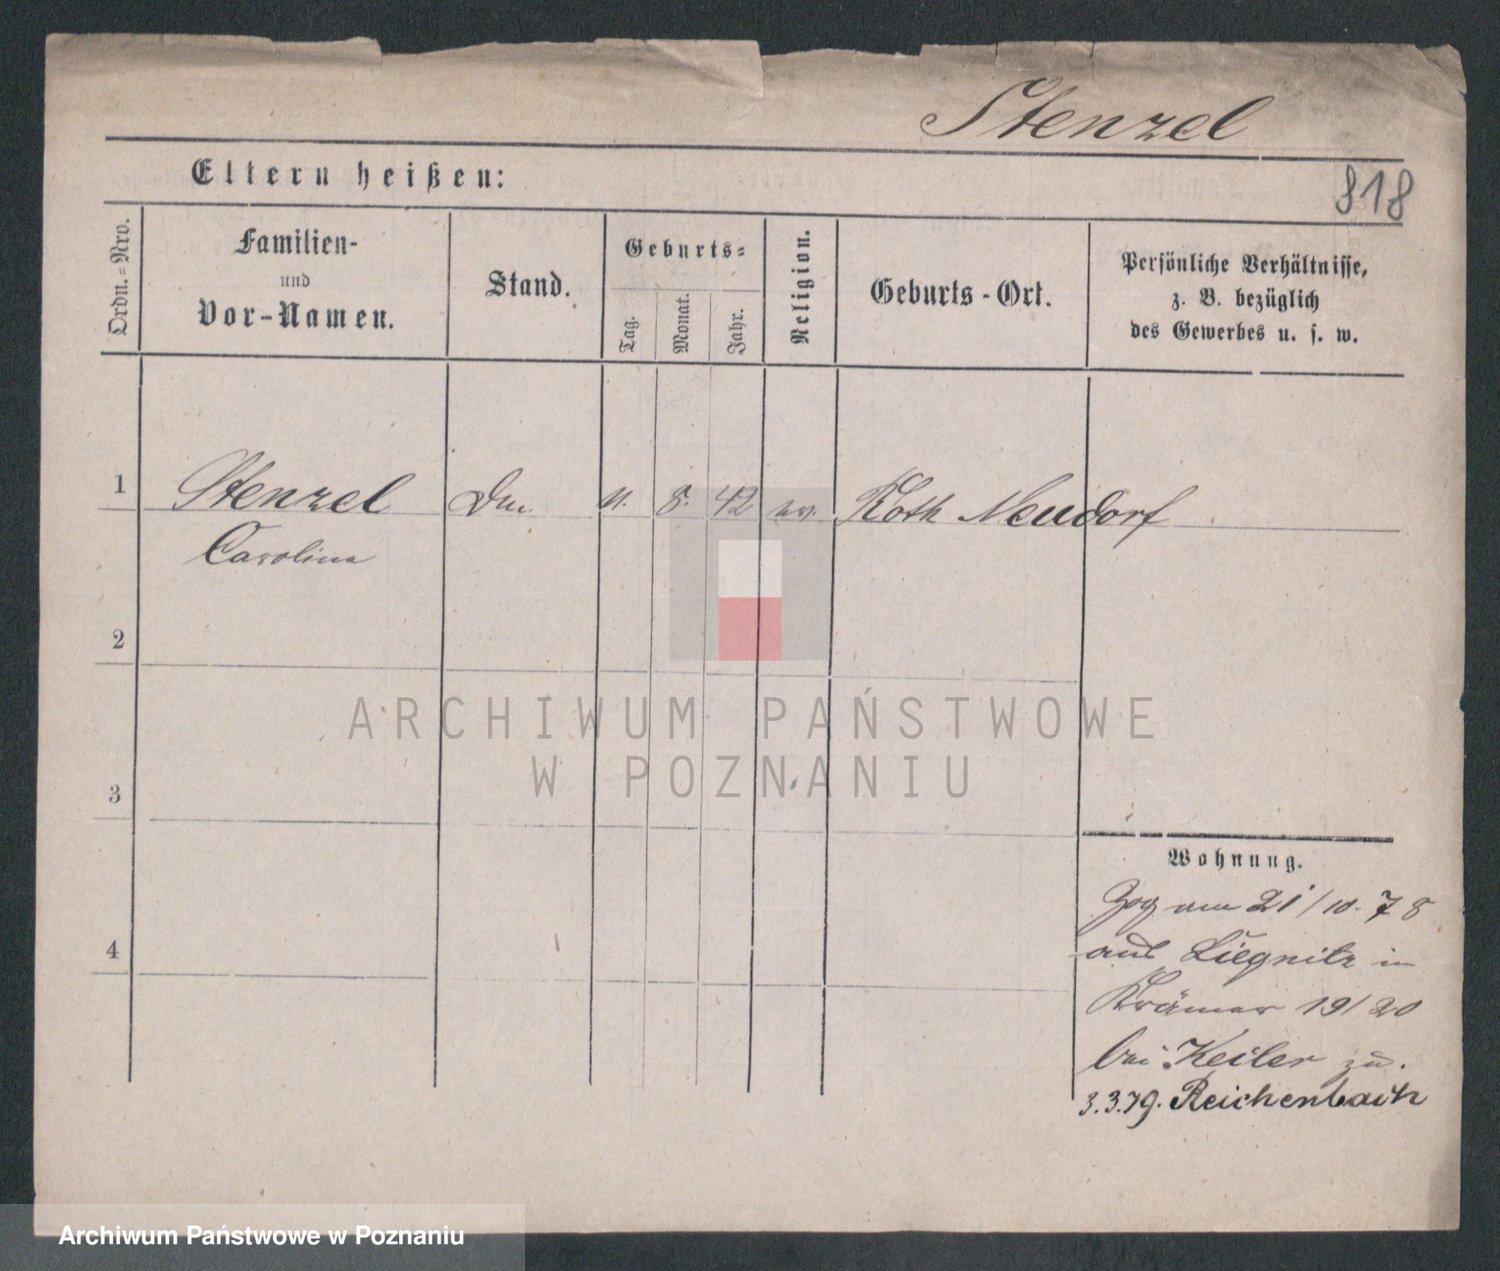 Stenzel
Eltern heißen:
818
Ordn.-Nro.
Familien-
und
Vor-Namen.
Stand.
Geburts-
Tag.
Monat.
Jahr.
Religion.
Geburts-Ort.
Persönliche Verhältnisse,
z. B. bezüglich
des Gewerbes u. s. w.
1 Stenzel 11. 8. 42 ev. Roth Neudorf
Carolina
2
ARCHIWUM PAŃSTWOWE
W POZNANIU
3
Wohnung.
Zog am 21/10. 78
aus Liegnitz in
4
Krämer 19/20
bei Keiler zu.
3.3.79. Reichenbach
Archiwum Państwowe w Poznaniu